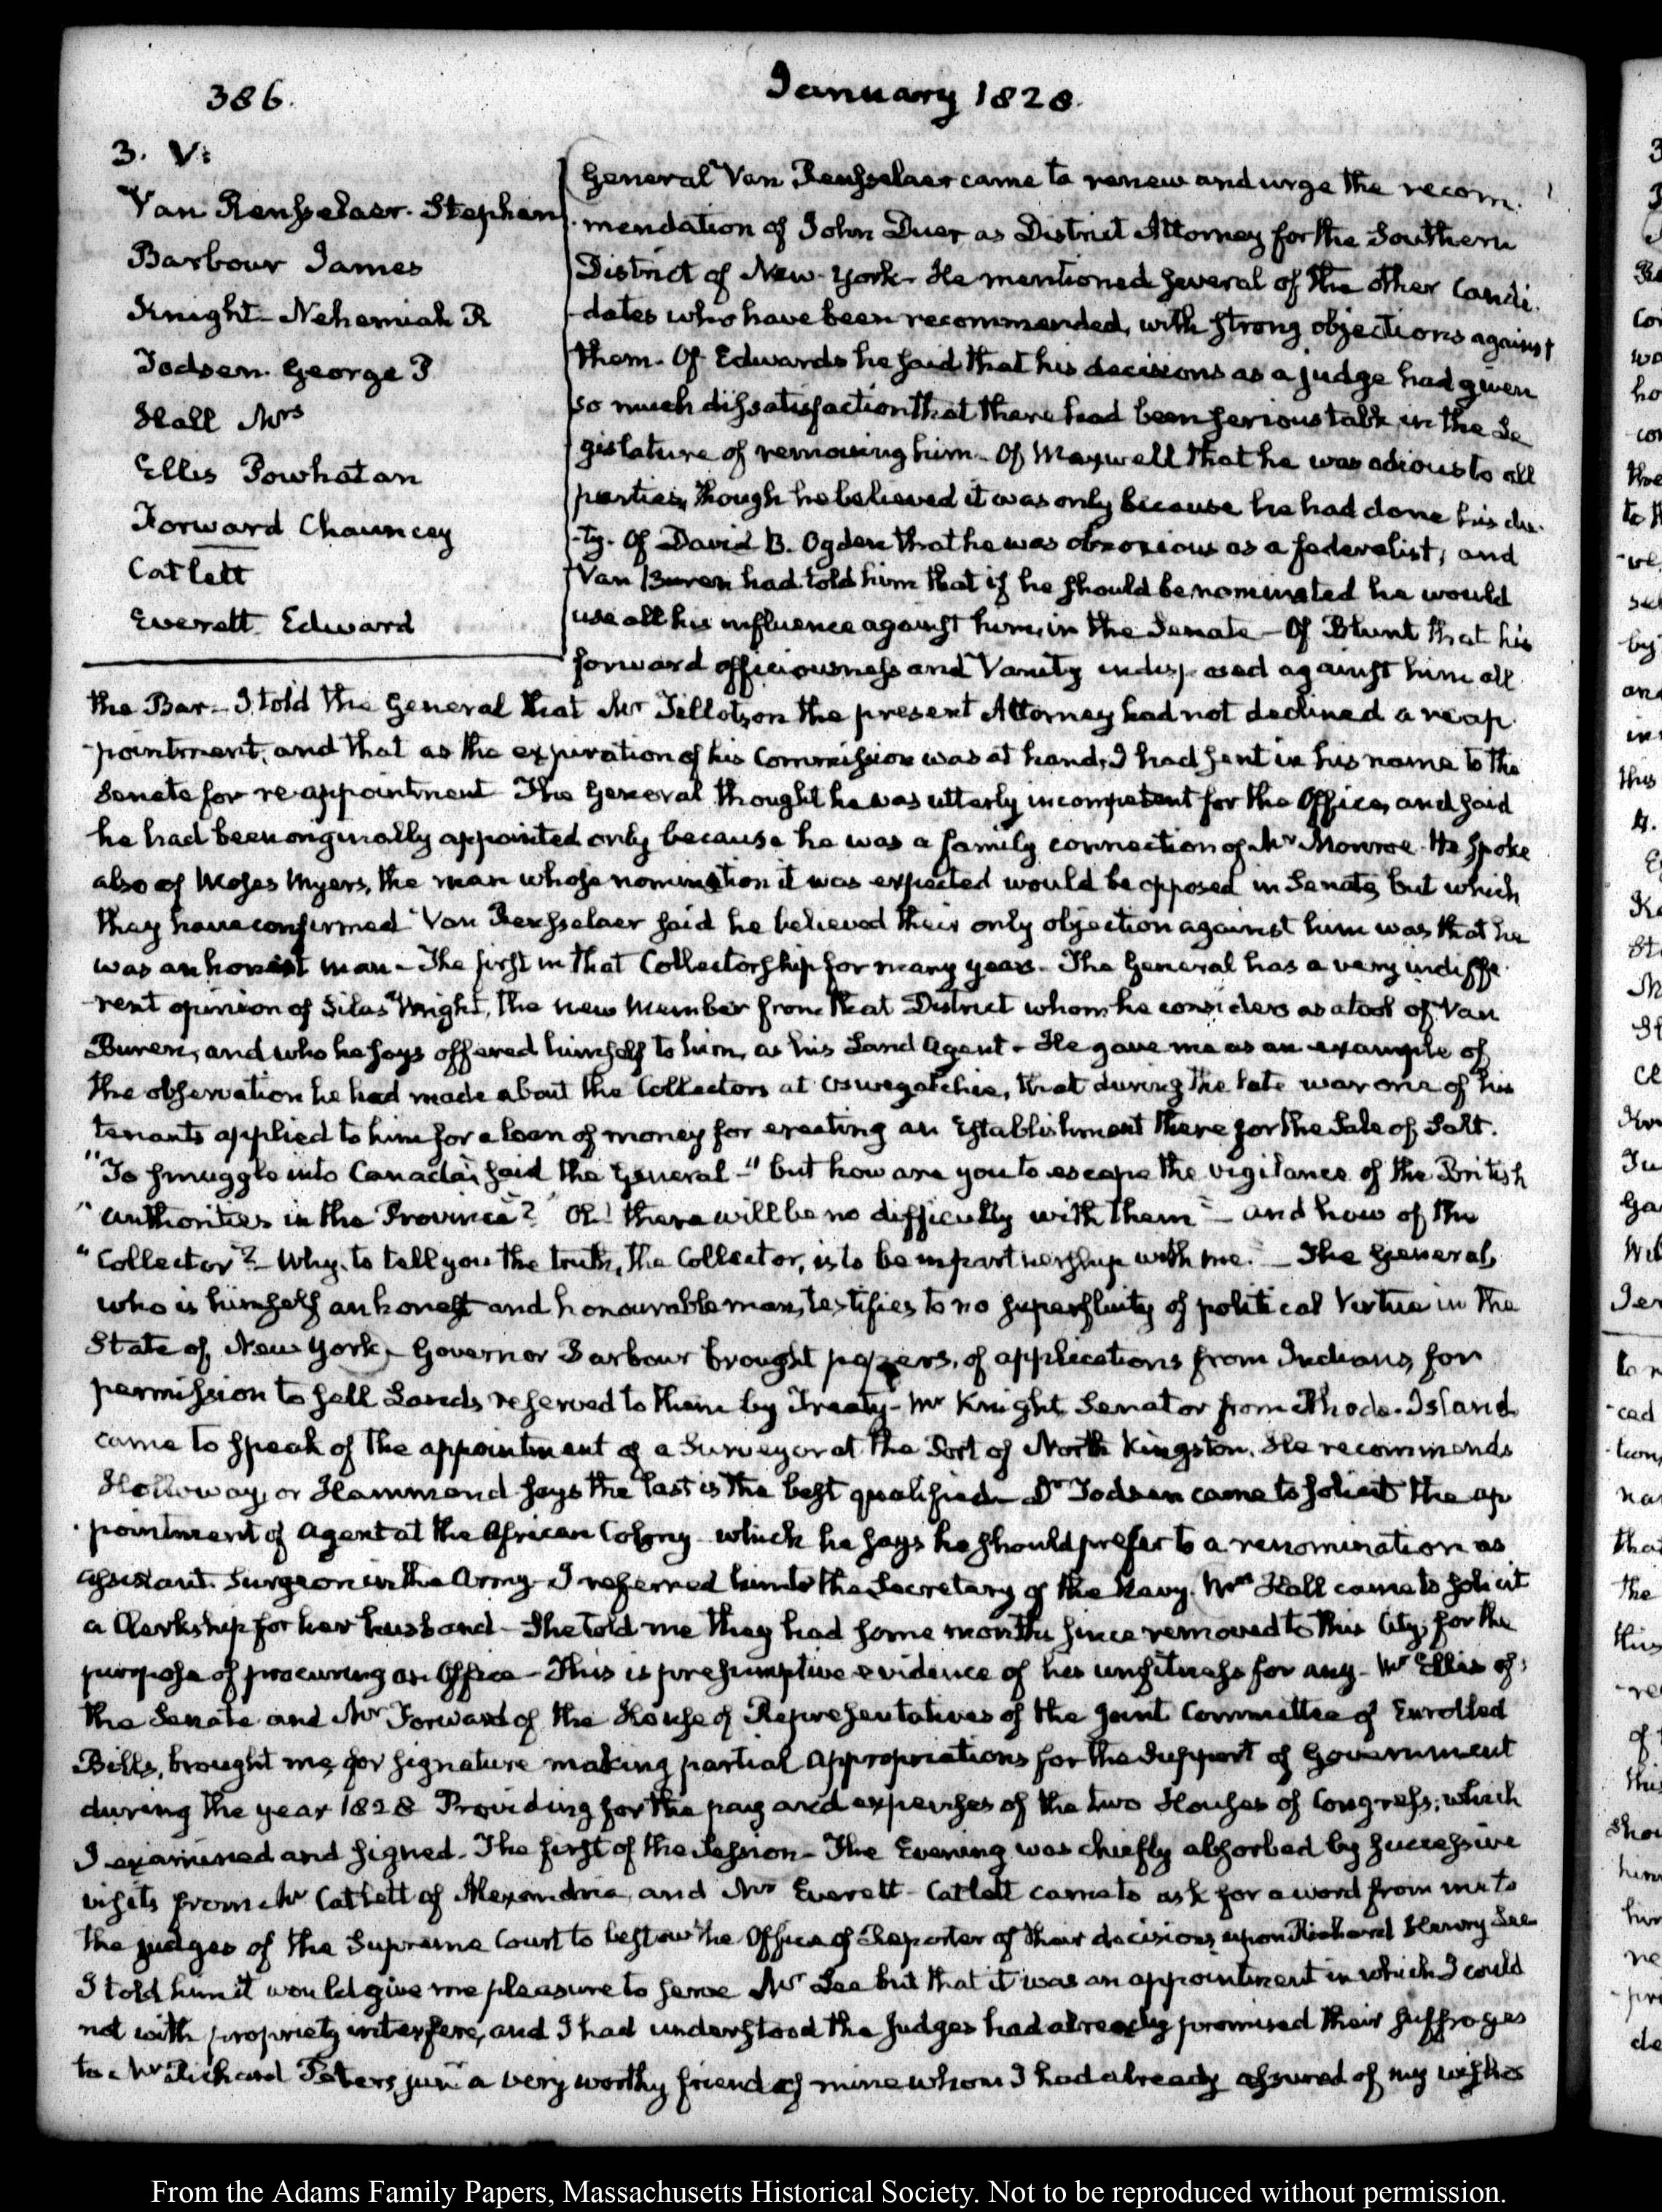 386.
January 1828.
3. V:
Van Rensselaer. Stephen
Barbour James
Knight- Nehemiah R
Todsen. George P
Hall Mrs
Ellis Powhatan
Forward Chauncey
Catlett
Everett Edward
General Van Rensselaer came to renew and urge the recom-
mendation of John Duer as District Attorney for the Southern
District of New-York- He mentioned several of the other Candi-
-dates who have been recommended, with strong objections against
them- Of Edwards he said that his decisions as a judge had given
so much dissatisfaction that there had been serious talk in the Le
gislature of removing him- Of Maxwell that he was odious to all
parties, though he believed it was only because he had done his du-
-ty. Of David B. Ogden that he was obnoxious as a federalist; and
Van Buren had told him that if he should be nominated he would
use all his influence against him, in the Senate- Of Blunt that his
forward officiousness and Vanity indisposed against him all
the Bar- I told the General that Mr Tillotson the present Attorney had not declined a reap-
-pointment, and that as the expiration of his Commission was at hand, I had sent in his name to the
Senate for re-appointment- The General thought he was utterly incompetent for the Office, and said
he had been originally appointed only because he was a family connection of Mr Monroe- He spoke
also of Moses Myers, the man whose nomination it was expected would be opposed in Senate, but which
they have confirmed- Van Rensselaer said he believed their only objection against him was that he
was an honest man- The first in that Collectorship for many years- The General has a very indiffe-
-rent opinion of Silas Wright, the new Member from that District whom he considers as a tool of Van
Buren, and who he says offered himself to him, as his Land Agent- He gave me as an example of
the observation he had made about the Collectors at Oswegatchie, that during the late war one of his
tenants applied to him for a loan of money for erecting an Establishment there for the Sale of Salt.
"To smuggle into Canada, said the General-" but how are you to escape the vigilance of the British
"authorities in the Province?" Oh! there will be no difficulty with them"- and how of the
"Collector"?- Why, to tell you the truth, the Collector, is to be in partnership with me."- The General,
who is himself an honest and honourable man, testifies to no superfluity of political Virtue in the
State of New York- Governor Barbour brought papers, of applications from Indians, for
permission to sell Lands reserved to them by Treaty- Mr Knight, Senator from Rhode-Island
came to speak of the appointment of a Surveyor at the Port of North Kingston. He recommends
Holloway, or Hammond- says the last is the best qualified- Dr Todsen came to solicit the ap
-pointment of Agent at the African Colony- which he says he should prefer to a renomination as
assistant Surgeon in the Army- I referred him to the Secretary of the Navy. Mrs Hall came to solicit
a Clerkship for her husband- She told me they had some months since removed to this City, for the
purpose of procuring an Office- This is presumptive evidence of his unfitness for any- Mr Ellis of
the Senate and Mr Forward of the House of Representatives of the joint Committee of Enrolled
Bills, brought me, for signature making partial appropriations for the Support of Government
during the year 1828 Providing for the pay and expenses of the two Houses of Congress; which
I examined and signed- The first of the Session- The Evening was chiefly absorbed by successive
visits from Mr Catlett of Alexandria, and Mr Everett- Catlett came to ask for a word from me to
the judges of the Supreme Court to bestow the Office of Reporter of their decisions, upon Richard Henry Lee
I told him it would give me pleasure to serve Mr Lee but that it was an appointment in which I could
not with propriety interfere, and I had understood the Judges had already promised their suffrages
to Mr Richard Peters junr a very worthy friend of mine whom I had already assured of my wishes
From the Adams Family Papers, Massachusetts Historical Society. Not to be reproduced without permission.